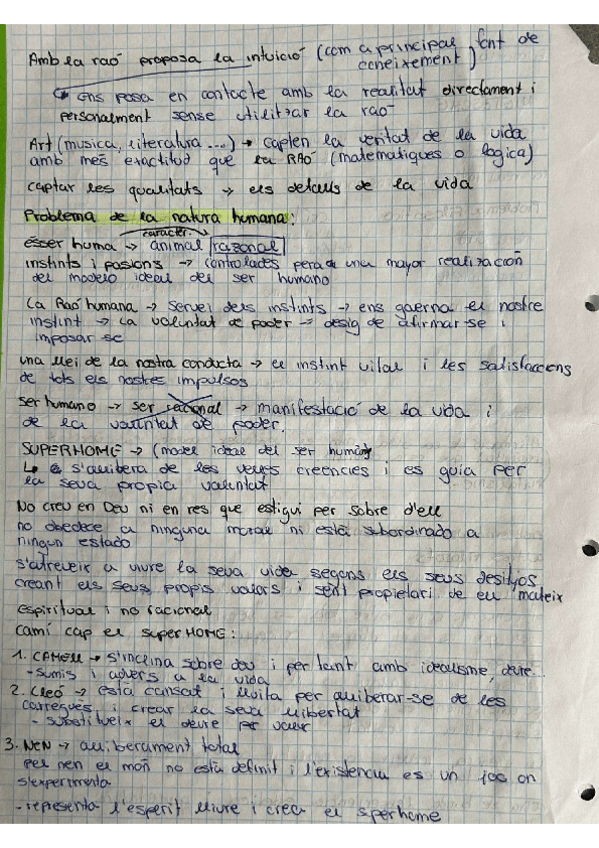 Amb la raó proposa la intuició (com a principal font de
coneixement)
↳ ens posa en contacte amb la realitat directament i
personalment sense utilitzar la raó
Art (musica, literatura ...) → capten la veritat de la vida
amb més exactitud que la RAÓ (matematiques o logica)
captar les qualitats → els detalls de la vida
Problema de la natura humana:
caracter.
ésser humà → animal razonal
instints i pasions → controlades per a una mayor realización
del modelo ideal del ser humano
La Raó humana → servei dels instints → ens gaerna el nostre
instint → La voluntat de poder → desig de afirmar-se i
imposar se
una llei de la nostra conducta → el instint vital i les satisfaccions
de tots els nostres impulsos
ser humano → ser racional → manifestació de la vida i
de la voluntat de poder.
SUPERHOME → (model ideal del ser humà)
↳ s'allibera de les velles creencies i es guia per
la seva propia voluntat
No creu en Deu ni en res que estigui per sobre d'ell
no obedece a ninguna moral ni està subordinado a
ningun estado
s'atreveix a viure la seva vida segons els seus desitjos
creant els seus propis valors i sent propietari de ell mateix
espiritual i no racional
Camí cap el superHOME:
1. CAMELL → s'inclina sobre deu i per tant amb idealisme, deure..
- sumis i advers a la vida
2. Lleó → està cansat i lluita per alliberar-se de les
carregues i crear la seva llibertat
- substitueix el deure per valor
3. NEN → alliberament total
Pel nen el mon no està definit i l'existencia es un joc on
s'experimenta
- representa l'esperit lliure i crea el sperhome